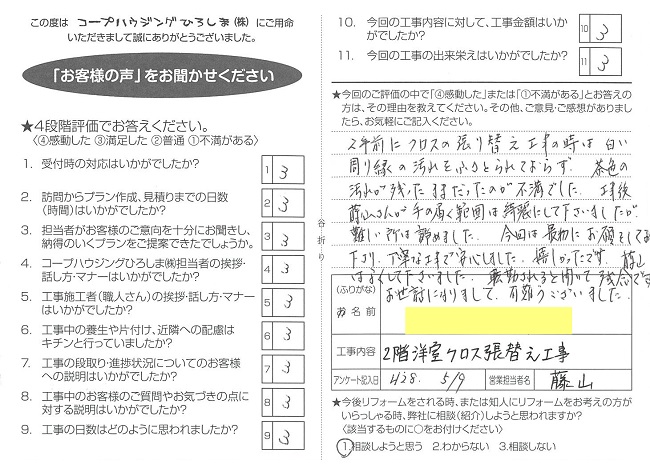 この度は コープハウジングひろしま(株) にご用命
いただきまして誠にありがとうございました。
「お客様の声」をお聞かせください
★4段階評価でお答えください。
〈④感動した ③満足した ②普通 ①不満がある〉
1. 受付時の対応はいかがでしたか?
1 3
2. 訪問からプラン作成、見積りまでの日数
(時間)はいかがでしたか?
2 3
3. 担当者がお客様のご意向を十分にお聞きし、
納得のいくプランをご提案できたでしょうか。
3 3
4. コープハウジングひろしま㈱担当者の挨拶・
話し方・マナーはいかがでしたか?
4 3
5. 工事施工者(職人さん)の挨拶・話し方・マナー
はいかがでしたか?
5 3
6. 工事中の養生や片付け、近隣への配慮は
キチンと行っていましたか?
6 3
7. 工事の段取り・進捗状況についてのお客様
への説明はいかがでしたか?
7 3
8. 工事中のお客様のご質問やお気づきの点に
対する説明はいかがでしたか?
8 3
9. 工事の日数はどのように思われましたか?
9 3
谷折り
10. 今回の工事内容に対して、工事金額はいか
がでしたか?
10 3
11. 今回の工事の出来栄えはいかがでしたか?
11 3
★今回のご評価の中で「④感動した」または「①不満がある」とお答えの
方は、その理由を教えてください。その他、ご意見・ご感想がありました
ら、お気軽にご記入ください。
2年前にクロスの張り替え工事の時は白い
周り縁の汚れをふきとられておらず、茶色の
汚れが残ったままだったのが不満でした。工事後
藤山さんが手の届く範囲は綺麗にして下さいましたが、
難しい所は諦めました。今回は最初にお願いをしてお
下さり、丁寧な工事で 嬉しかったです。藤山
はよくして下さいました。転勤されると聞いて残念です
お世話になりまして、有難うございました。
(ふりがな)
お名前
工事内容 2階洋室クロス張替え工事
アンケート記入日 H28. 5/9 営業担当者名 藤山
★今後リフォームをされる時、または知人にリフォームをお考えの方が
いらっしゃる時、弊社に相談(紹介)しようと思われますか?
〈該当するものに○をお付けください〉
1.相談しようと思う 2.わからない 3.相談しない